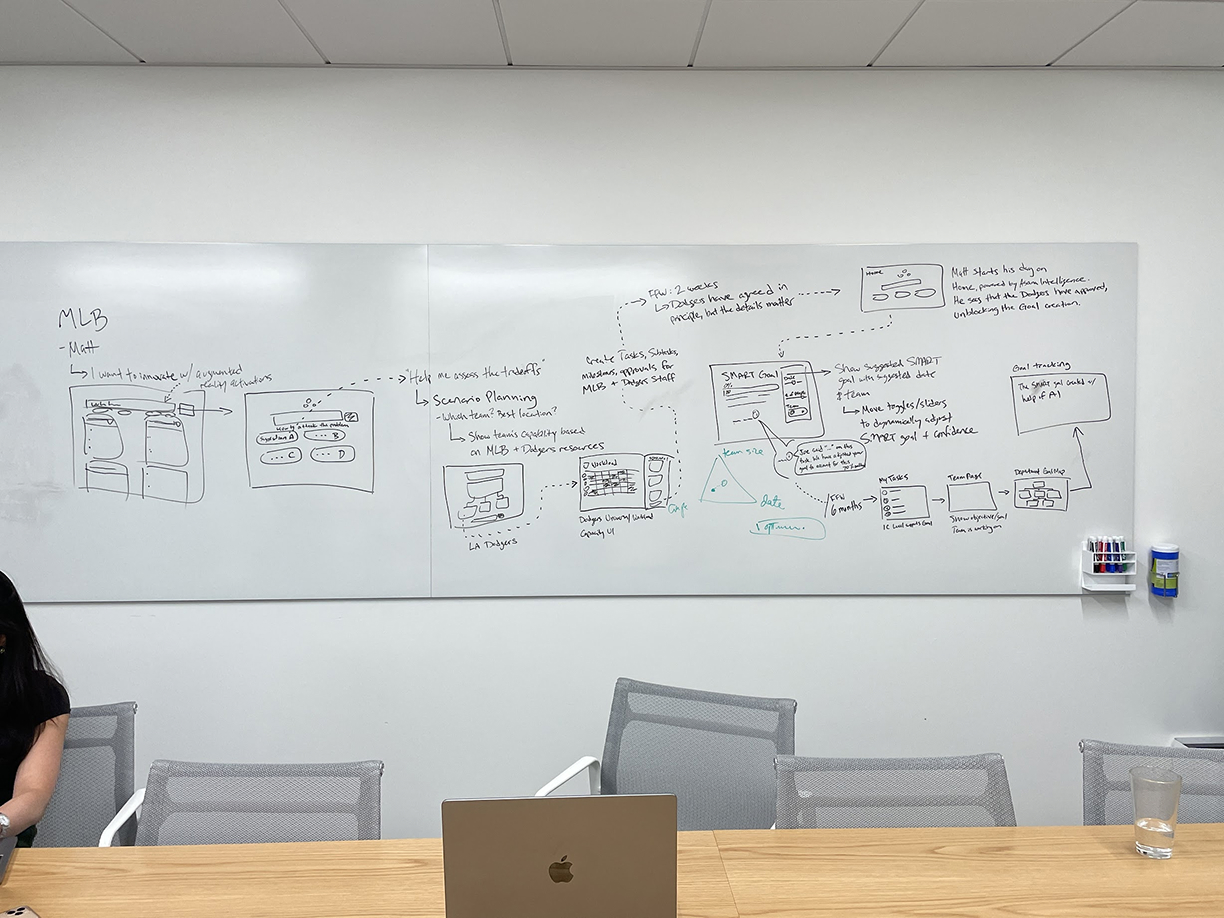 MLB
- Matt
I want to innovate w/ augmented
reality activations
"Help me assess the tradeoffs"
Scenario Planning
- Which team? Best location?
Show team's capability based
on MLB + Dodgers resources
the problem
A
B
C
D
LA Dodgers
Workload
Dodgers Universal Workload
Capacity UI
Create Tasks, Subtasks,
milestones, approvals for
MLB + Dodgers Staff
FFW: 2 weeks
Dodgers have agreed in
principle, but the details matter
Home
Matt starts his day on
Home, powered by team Intelligence.
He sees that the Dodgers have approved,
unblocking the Goal creation.
SMART Goal
Date
Team
Show suggested SMART
goal with suggested date
& team
Move toggles/sliders
to dynamically adjust
SMART goal + confidence
Joe said "..." on this
task. We have adjusted your
goal to account for this
team size
date
FFW
6 months
My Tasks
IC Level supports Goal
Team Page
Show objective/goal
Team is working on
Department Goal Map
Goal tracking
The SMART goal created w/
help of AI